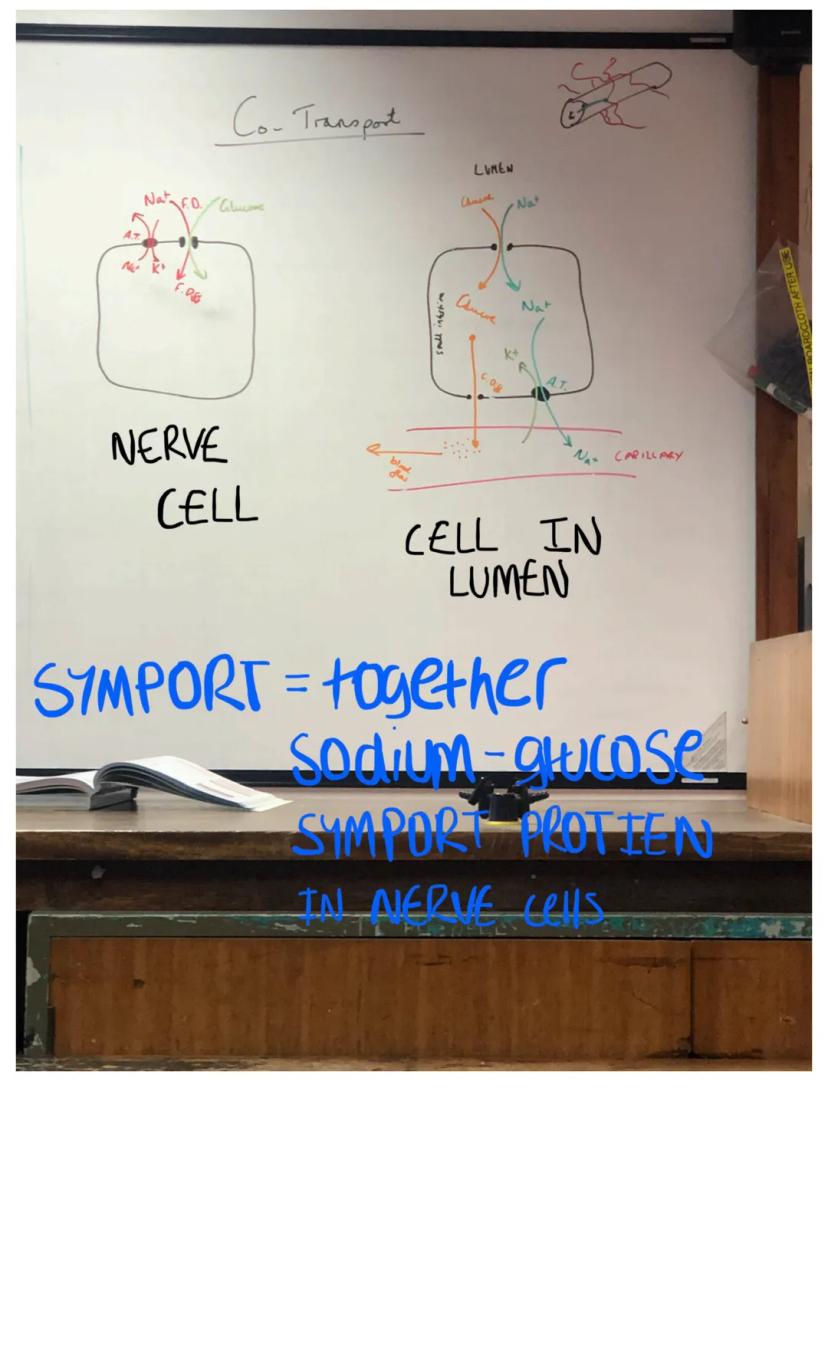 Co-Transport
LUMEN
Na+ F.D. Glucose
A.T.
Na+ K+
F.Diff
NERVE
CELL
Glucose Na+
Glucose Na+
small intestine
K+
F.Diff A.T.
blood flow
Na+ CAPILLARY
CELL IN
LUMEN
SYMPORT = together
sodium-glucose
SYMPORT PROTIEN
IN NERVE cells
BOARDCLOTH AFTER USE